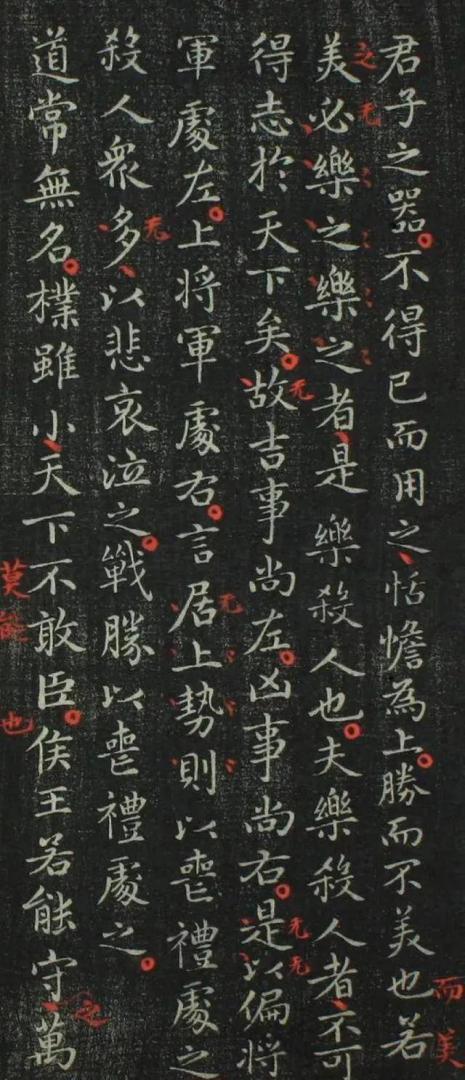 君子之器。不得已而用之、恬憺為上。勝而不美也若
而美
美必樂之樂之者、是樂殺人也。夫樂殺人者、不可
之
无
得志於天下矣。故吉事尚左。凶事尚右。是以偏將
无
无
无
軍處左。上將軍處右。言居上勢則以喪禮處之
无
殺人衆多、以悲哀泣之。戰勝以喪禮處之。
无
道常無名。樸雖小、天下不敢臣。侯王若能守、萬
莫能
也
之